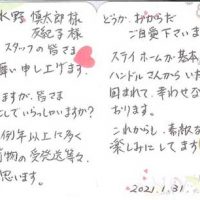 水野 慎太郎 様
友紀子 様
スタッフの皆さま
舞い申し上げます。
ますが、皆さま
していらっしゃいますか?
例年以上に多く
荷物の受発送等々、
思います。
どうか、おからだ
ご自愛下さいませ
スライ ホームが基本
ハンドルさんから いた
囲まれて、幸わせな
おります。
これからも、素敵な
楽しみにしてます
2021.1.31.